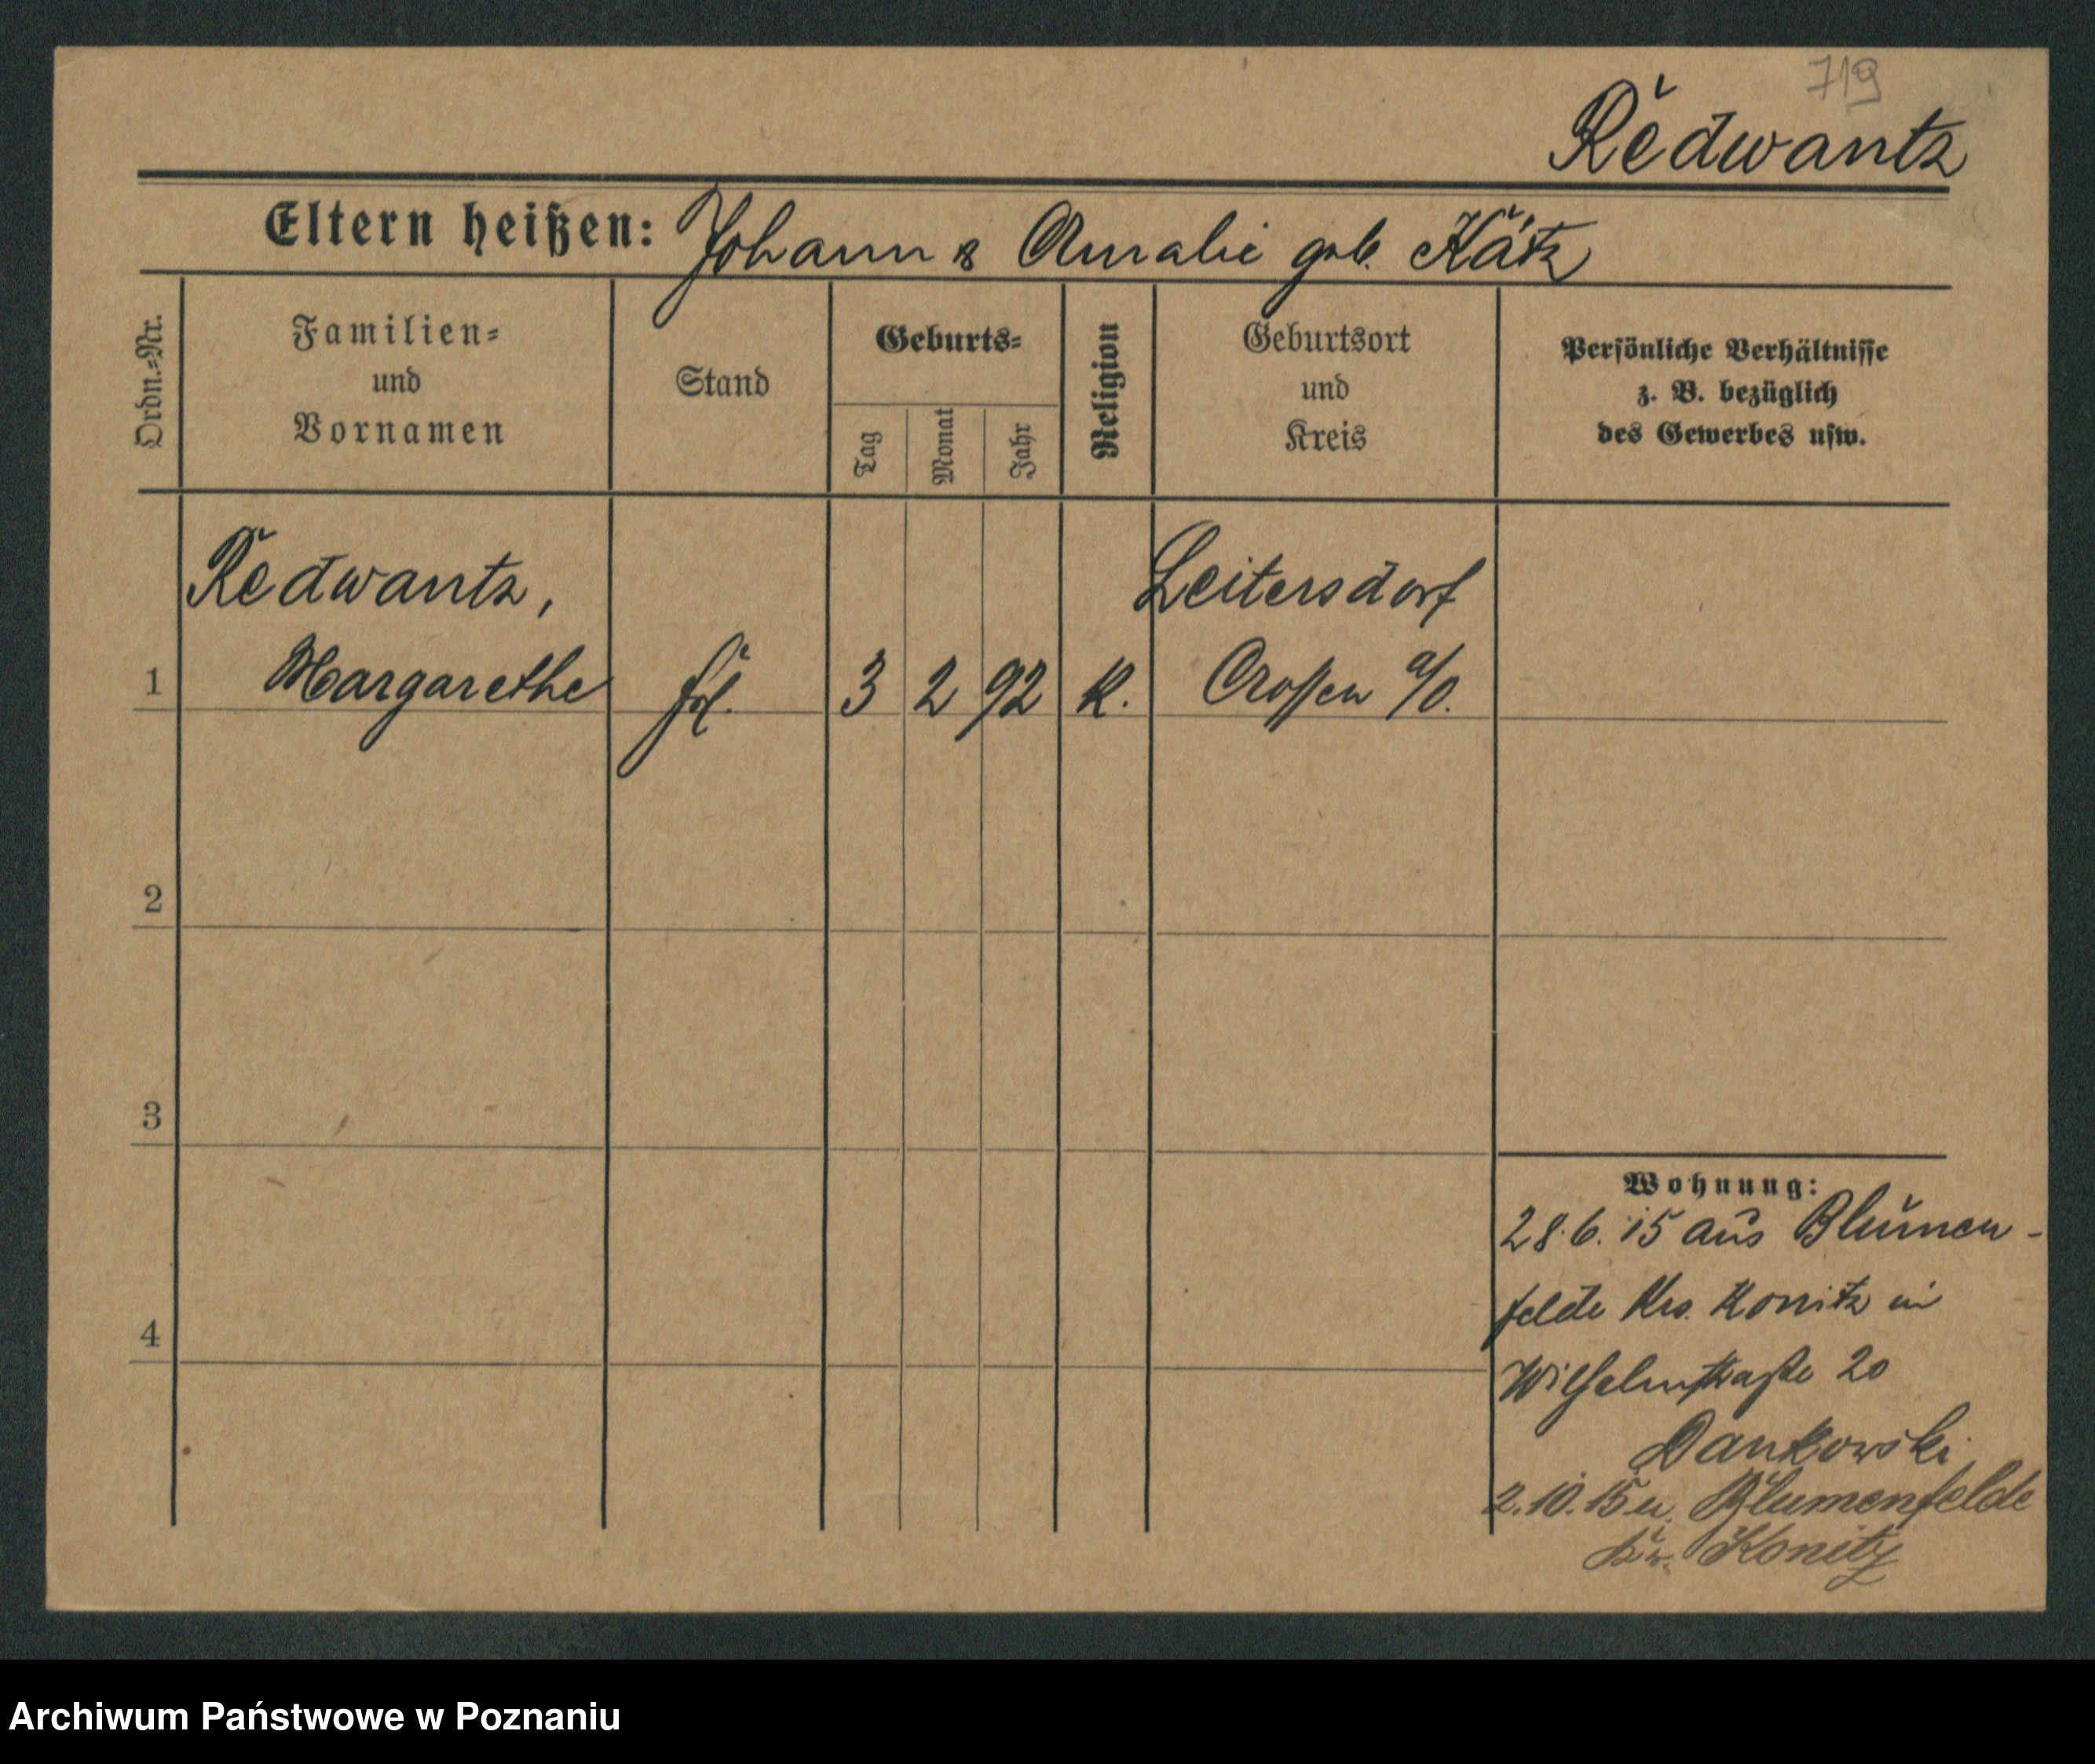 719
Redwantz
Eltern heißen: Johann & Amalie geb. Kätz
Ordn.-Nr.
Familien-
und
Vornamen
Stand
Geburts-
Tag
Monat
Jahr
Religion
Geburtsort
und
Kreis
Persönliche Verhältnisse
z. B. bezüglich
des Gewerbes usw.
Redwantz,
Leitersdorf
1 Margarethe frl. 3 2 92 k. Crossen a/O.
2
3
Wohnung:
28.6.15 aus Blumen-
felde Krs. Konitz in
4
Wilhelmstraße 20
Dankowski
2.10.15 n. Blumenfelde
Konitz
Archiwum Państwowe w Poznaniu